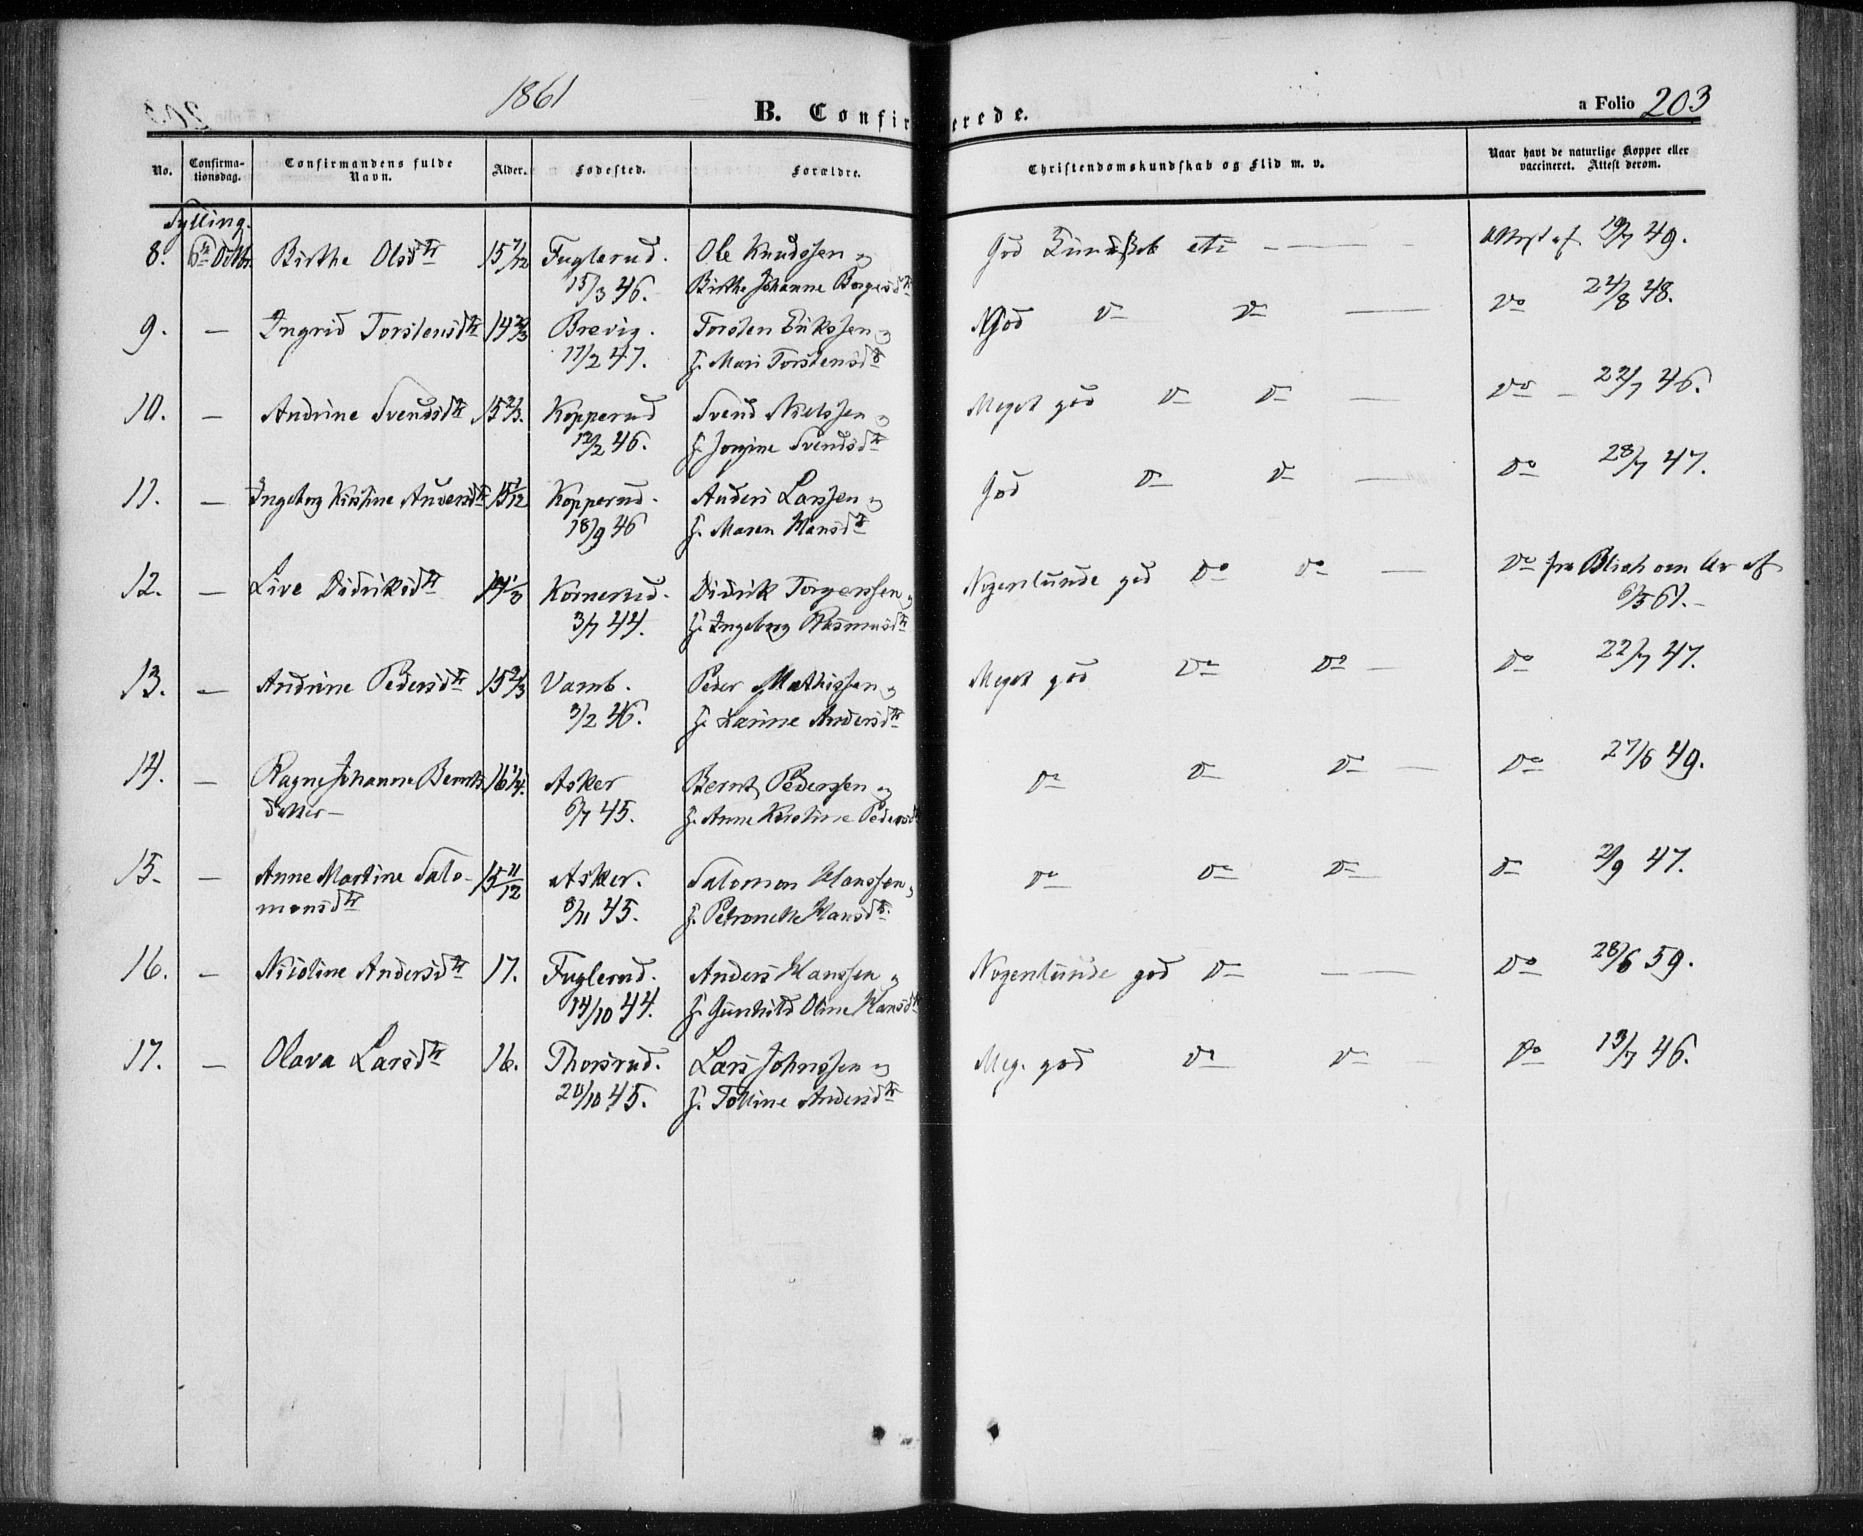 1861
B. Confirmerede.
a Folio 203
No. Confirmationsdag. Confirmandens fulde Navn. Alder. Fødested. Forældre. Christendomskundskab og Flid m. v. Naar havt de naturlige Kopper eller vaccineret. Attest derom.
Sylling.
8. 6te Octbr. Birthe Olsdtr 15 7/12 Fuglerud. Ole Knudssen og God Kundskab etc — Attest af 19/7 49.
15/3 46. Birthe Johanne Borgersdtr
9. — Ingrid Torstensdtr 14 2/3 Brevig. Torsten Erikssen og Ngod do do — do 24/8 48.
17/2 47. H. Mari Torstensdtr
10. — Andrine Svendsdtr 15 2/3. Kopperud Svend Nielssen og Meget god do do — do — 22/7 46.
12/2 46. H. Jorgine Svendsdtr
11. — Ingeborg Kirstine Andersdtr 15 1/12 Kopperud. Anders Larssen og God do do — do 28/7 47.
18/9 46 H. Maren Hansdtr
12. — Live Didriksdtr 17 1/3 Kornerud. Didrik Torgerssen og Nogenlunde god do do — do fra Blich om Av af
3/7 44. H. Ingeborg Rasmusdtr 6/5 61.
13. — Andrine Pedersdtr 15 2/3 Vamb. Peder Mathissen og Meget god do do — do 22/7 47.
3/2 46. H. Larine Andersdtr
14. — Ragne Johanne Bernts 16 1/4. Asker Bernt Pederssen og do do do — do 27/6 49.
datter — 6/7 45. H. Anne Kirstine Pedersd
15. — Anne Martine Salo- 15 11/12 Asker. Salomon Hanssen og do do do — do 2/9 47.
monsdtr 8/11 45. H. Petronelle Hansdtr.
16. — Nicoline Andersdtr 17. Fuglerud. Anders Hanssen og Nogenlunde god do — — do 28/6 59.
14/10 44. H. Gunhild Oline Hansdtr
17. — Olava Larsdtr 16. Thorsrud. Lars Johnssen og Meg. god do do — do 13/7 46.
20/10 45. H. Tolline Andersdtr